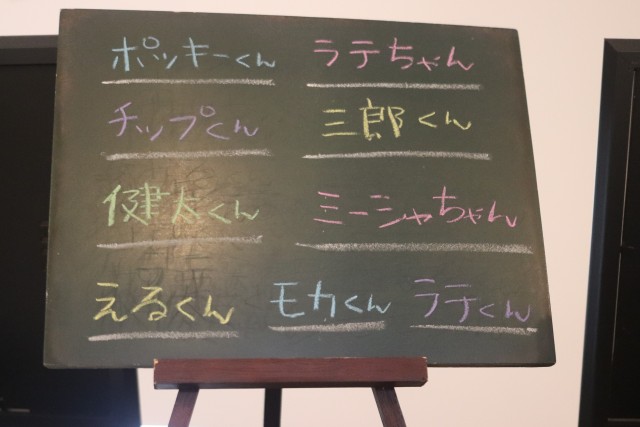 ポッキーくん ラテちゃん
チップくん 三郎くん
健太くん ミーシャちゃん
えるくん モカくん ラテくん